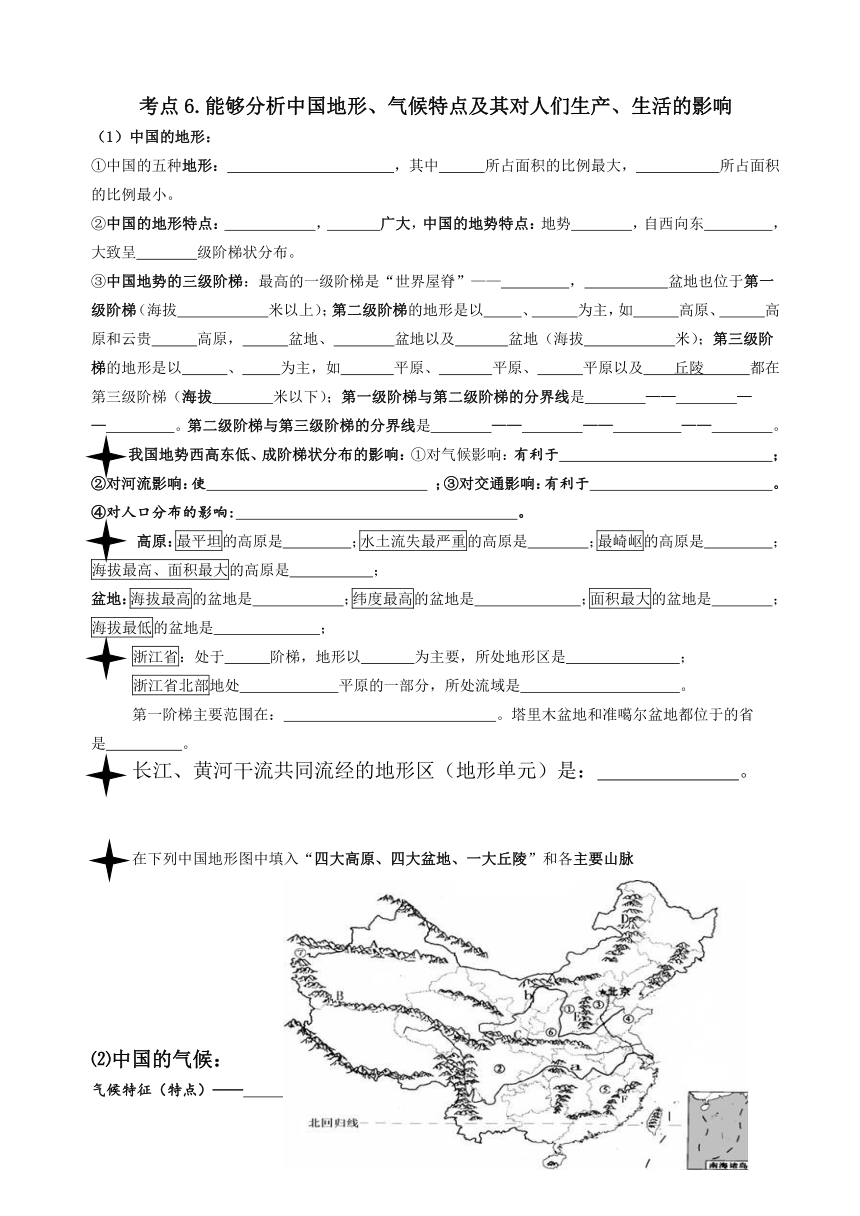 考点 6.能够分析中国地形、气候特点及其对人们生产、生活的影响
（1）中国的地形：
①中国的五种地形：______________________，其中______所占面积的比例最大，___________所占面积
的比例最小。
②中国的地形特点：____________，_______广大，中国的地势特点：地势________，自西向东_________，
大致呈________级阶梯状分布。
③中国地势的三级阶梯：最高的一级阶梯是“世界屋脊”——_________，___________盆地也位于第一
级阶梯（海拔____________米以上）；第二级阶梯的地形是以_____、_____为主，如______高原、______高
原和云贵______高原，______盆地、________盆地以及_______盆地（海拔____________米）；第三级阶
梯的地形是以______、_____为主，如_______平原、_______平原、______平原以及____丘陵______都在
第三级阶梯（海拔________米以下）；第一级阶梯与第二级阶梯的分界线是________——________—
—_________。第二级阶梯与第三级阶梯的分界线是________——________——_________——________。
我国地势西高东低、成阶梯状分布的影响：①对气候影响：有利于____________________________；
②对河流影响：使_____________________________；③对交通影响：有利于________________________。
④对人口分布的影响：_____________________________________。
高原：最平坦的高原是_________；水土流失最严重的高原是________；最崎岖的高原是_________；
海拔最高、面积最大的高原是___________；
盆地：海拔最高的盆地是____________；纬度最高的盆地是______________；面积最大的盆地是________；
海拔最低的盆地是______________；
浙江省：处于______阶梯，地形以_______为主要，所处地形区是_______________；
浙江省北部地处_____________平原的一部分，所处流域是_____________________。
第一阶梯主要范围在：____________________________。塔里木盆地和准噶尔盆地都位于的省
是__________。
长江、黄河干流共同流经的地形区（地形单元）是：______________。
在下列中国地形图中填入“四大高原、四大盆地、一大丘陵”和各主要山脉
D
⑦
B
b
北京
①
③
E
④
⑥
C
②
a
A
⑤
F
北回归线
南海诸岛
⑵中国的气候：
气候特征（特点）——_____